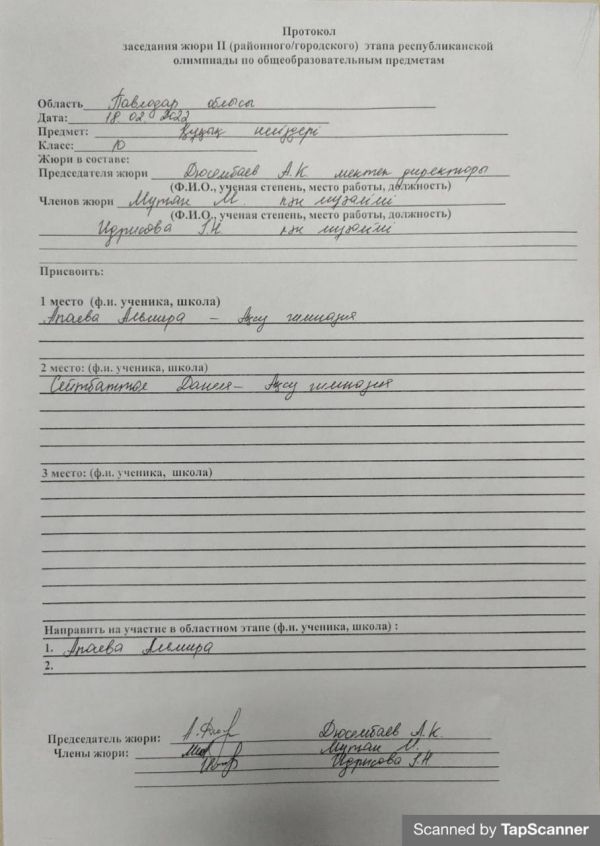 Протокол
заседания жюри II (районного/городского) этапа республиканской
олимпиады по общеобразовательным предметам
Область Павлодар облысы
Дата: 18.02.2022
Предмет: Құқық негіздері
Класс: 10
Жюри в составе:
Председателя жюри Дюсембаев А.К мектеп директоры
(Ф.И.О., ученая степень, место работы, должность)
Членов жюри М. пән мұғалімі
(Ф.И.О., ученая степень, место работы, должность)
Идрисова З.Н пән мұғалімі
Присвоить:
1 место (ф.и. ученика, школа)
Апаева Альмира – Ақсу гимназия
2 место: (ф.и. ученика, школа)
– Ақсу гимназия
3 место: (ф.и. ученика, школа)
Направить на участие в областном этапе (ф.и. ученика, школа) :
1. Апаева Альмира
2.
Председатель жюри: Дюсембаев А.К.
Члены жюри: М.
Идрисова З.Н
Scanned by TapScanner